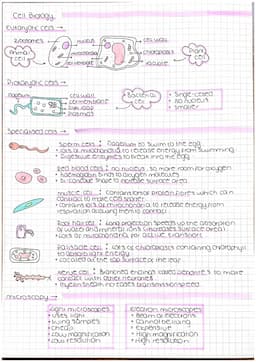 Cell Biology
Eukaryotic cells →
ribosomes
nucleus
cell wall
Animal cell
mitochondria
chloroplasts
Plant cell
vacuole
Prokaryotic cells →
flagellum
cell wall
cell membrane
plasmids
Bacterial cell
• Single-celled
• No nucleus
• Smaller
Specialised cells →
Sperm cells : flagellum to swim to the egg
• Lots of mitochondria to release energy from swimming
• Digestive enzymes to break into the egg
Red blood cells : no nucleus so more room for oxygen
• Haemoglobin binds to oxygen molecules
• Bi-concave shape to increase surface area
muscle cell : Contains lots of protein fibres which can
contract to make cells shorter
• Contains lots of mitochondria to release energy from
respiration allowing them to contract
Root hair cell : Long projection speeds up the absorption
of water and mineral ions (increases surface area)
• Lots of mitochondria for active transport
Palisade cell : Lots of chloroplasts containing chlorophyll
to absorb light energy
• Located at the top surface of the leaf
Nerve cell : Branched endings called dendrites to make
contact with other neurones
• myelin sheath increases transmission speed
microscopy →
Light microscopes
• Uses light
• Living samples
• Cheap
• Low magnification
• Low resolution
Electron microscopes
• Beam of electrons
• Cannot be living
• Expensive
• High magnification
• High resolution